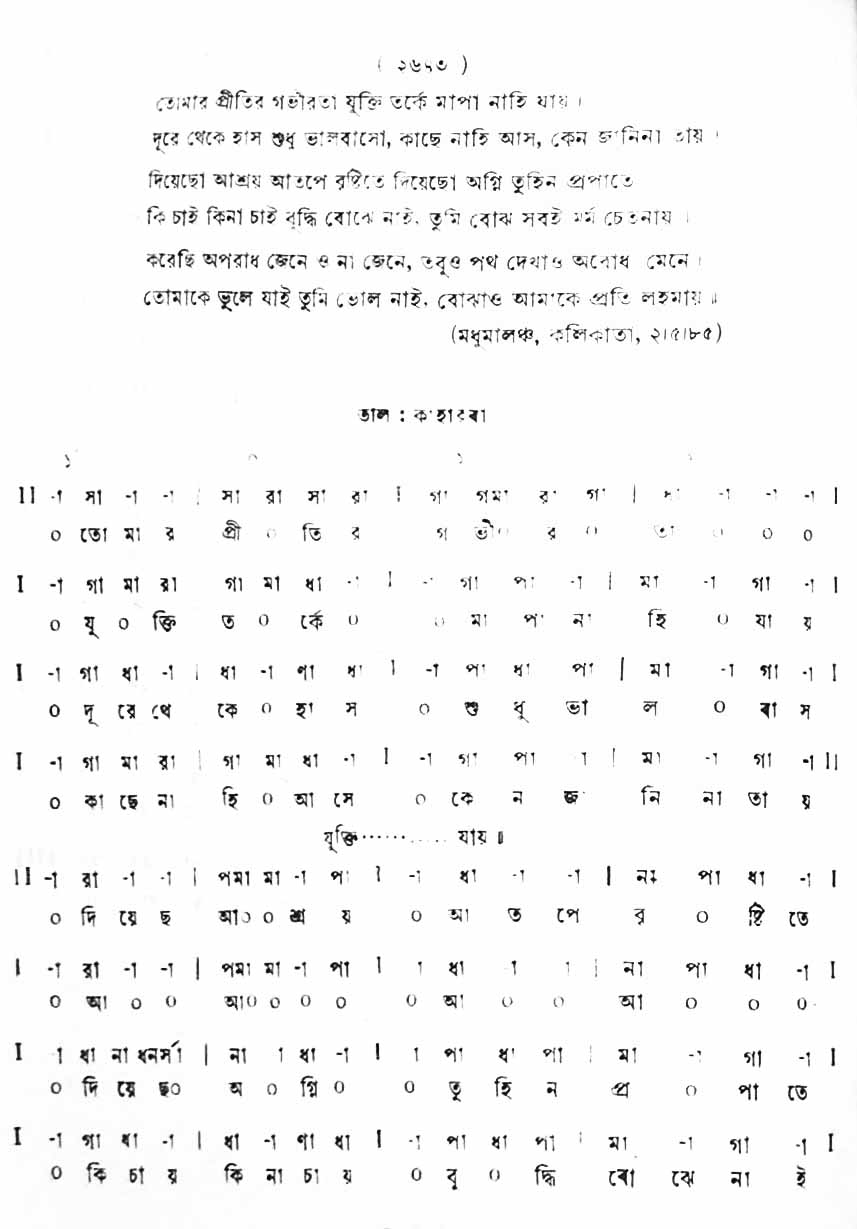 ( ২৬৮৩ )
তোমার প্রীতির গভীরতা যুক্তি তর্কে মাপা নাহি যায় ।
দূরে থেকে হাস শুধু ভালবাসো, কাছে নাহি আস, কেন জানিনা তায় ।
দিয়েছো আশ্রয় আতপে বৃষ্টিতে দিয়েছো অগ্নি তুহিন প্রপাতে
কি চাই কিনা চাই বুদ্ধি বোঝে নাই, তুমি বোঝ সবই মর্ম চেতনায় ।
করেছি অপরাধ জেনে ও না জেনে, তবুও পথ দেখাও অবোধ মেনে ।
তোমাকে ভুলে যাই তুমি ভোল নাই, বোঝাও আমাকে প্রতি লহমায় ॥
(মধুমালঞ্চ, কলিকাতা, ২।৫।৮৫)
তাল : কাহারবা
১ ০ ১ ০
II -া সা -া -া | সা রা সা রা I গা গমা রা গা | ধা -া -া -া I
০ তো মা র প্রী ০ তি র গ ভী০ র ০ তা ০ ০ ০
I -া গা মা রা গা মা ধা -া I -া গা পা -া | মা -া গা -া I
০ যু ০ ক্তি ত ০ র্কে ০ ০ মা পা না হি ০ যা য়
I -া গা ধা -া | ধা -া ণা ধা I -া পা ধা পা | মা -া গা -া I
০ দূ রে থে কে ০ হা স ০ শু ধু ভা ল ০ বা স
I -া গা মা রা | গা মা ধা -া I -া গা পা া | মা -া গা -া II
০ কা ছে না হি ০ আ সে ০ কে ন জ নি না তা য়
যুক্তি........... যায় ॥
II -া রা -া -া | পমা মা -া পা I -া ধা -া -া | না পা ধা -া I
০ দি য়ে ছ আ০ ০ শ্র য় ০ আ ত পে বৃ ০ ষ্টি তে
I -া রা -া -া | পমা মা -া পা I া ধা া া | না পা ধা -া I
০ আ ০ ০ আ০ ০ ০ ০ ০ আ ০ ০ আ ০ ০ ০
I া ধা না ধনর্সা | না া ধা -া I া পা ধা পা | মা -া গা -া I
০ দি য়ে ছ০ অ ০ গ্নি ০ ০ তু হি ন প্র ০ পা তে
I -া গা ধা -া | ধা -া ণা ধা I -া পা ধা পা | মা -া গা -া I
০ কি চা য় কি না চা য় ০ বু ০ দ্ধি বো ঝে না ই